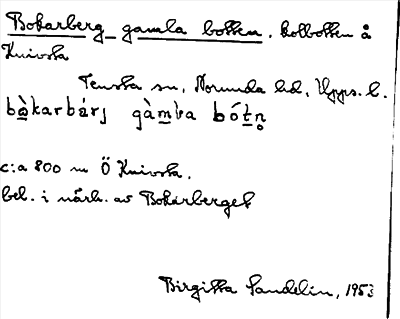 Bokarberg_ gamla botten. kolbotten å
Knivsta
Tensta sn, Norunda hd, Upps. l.
bàkarbárj gàmba bótn̥
c:a 800 m Ö Knivsta.
bel. i närh. av Bokarberget
Birgitta Sandelin, 1953